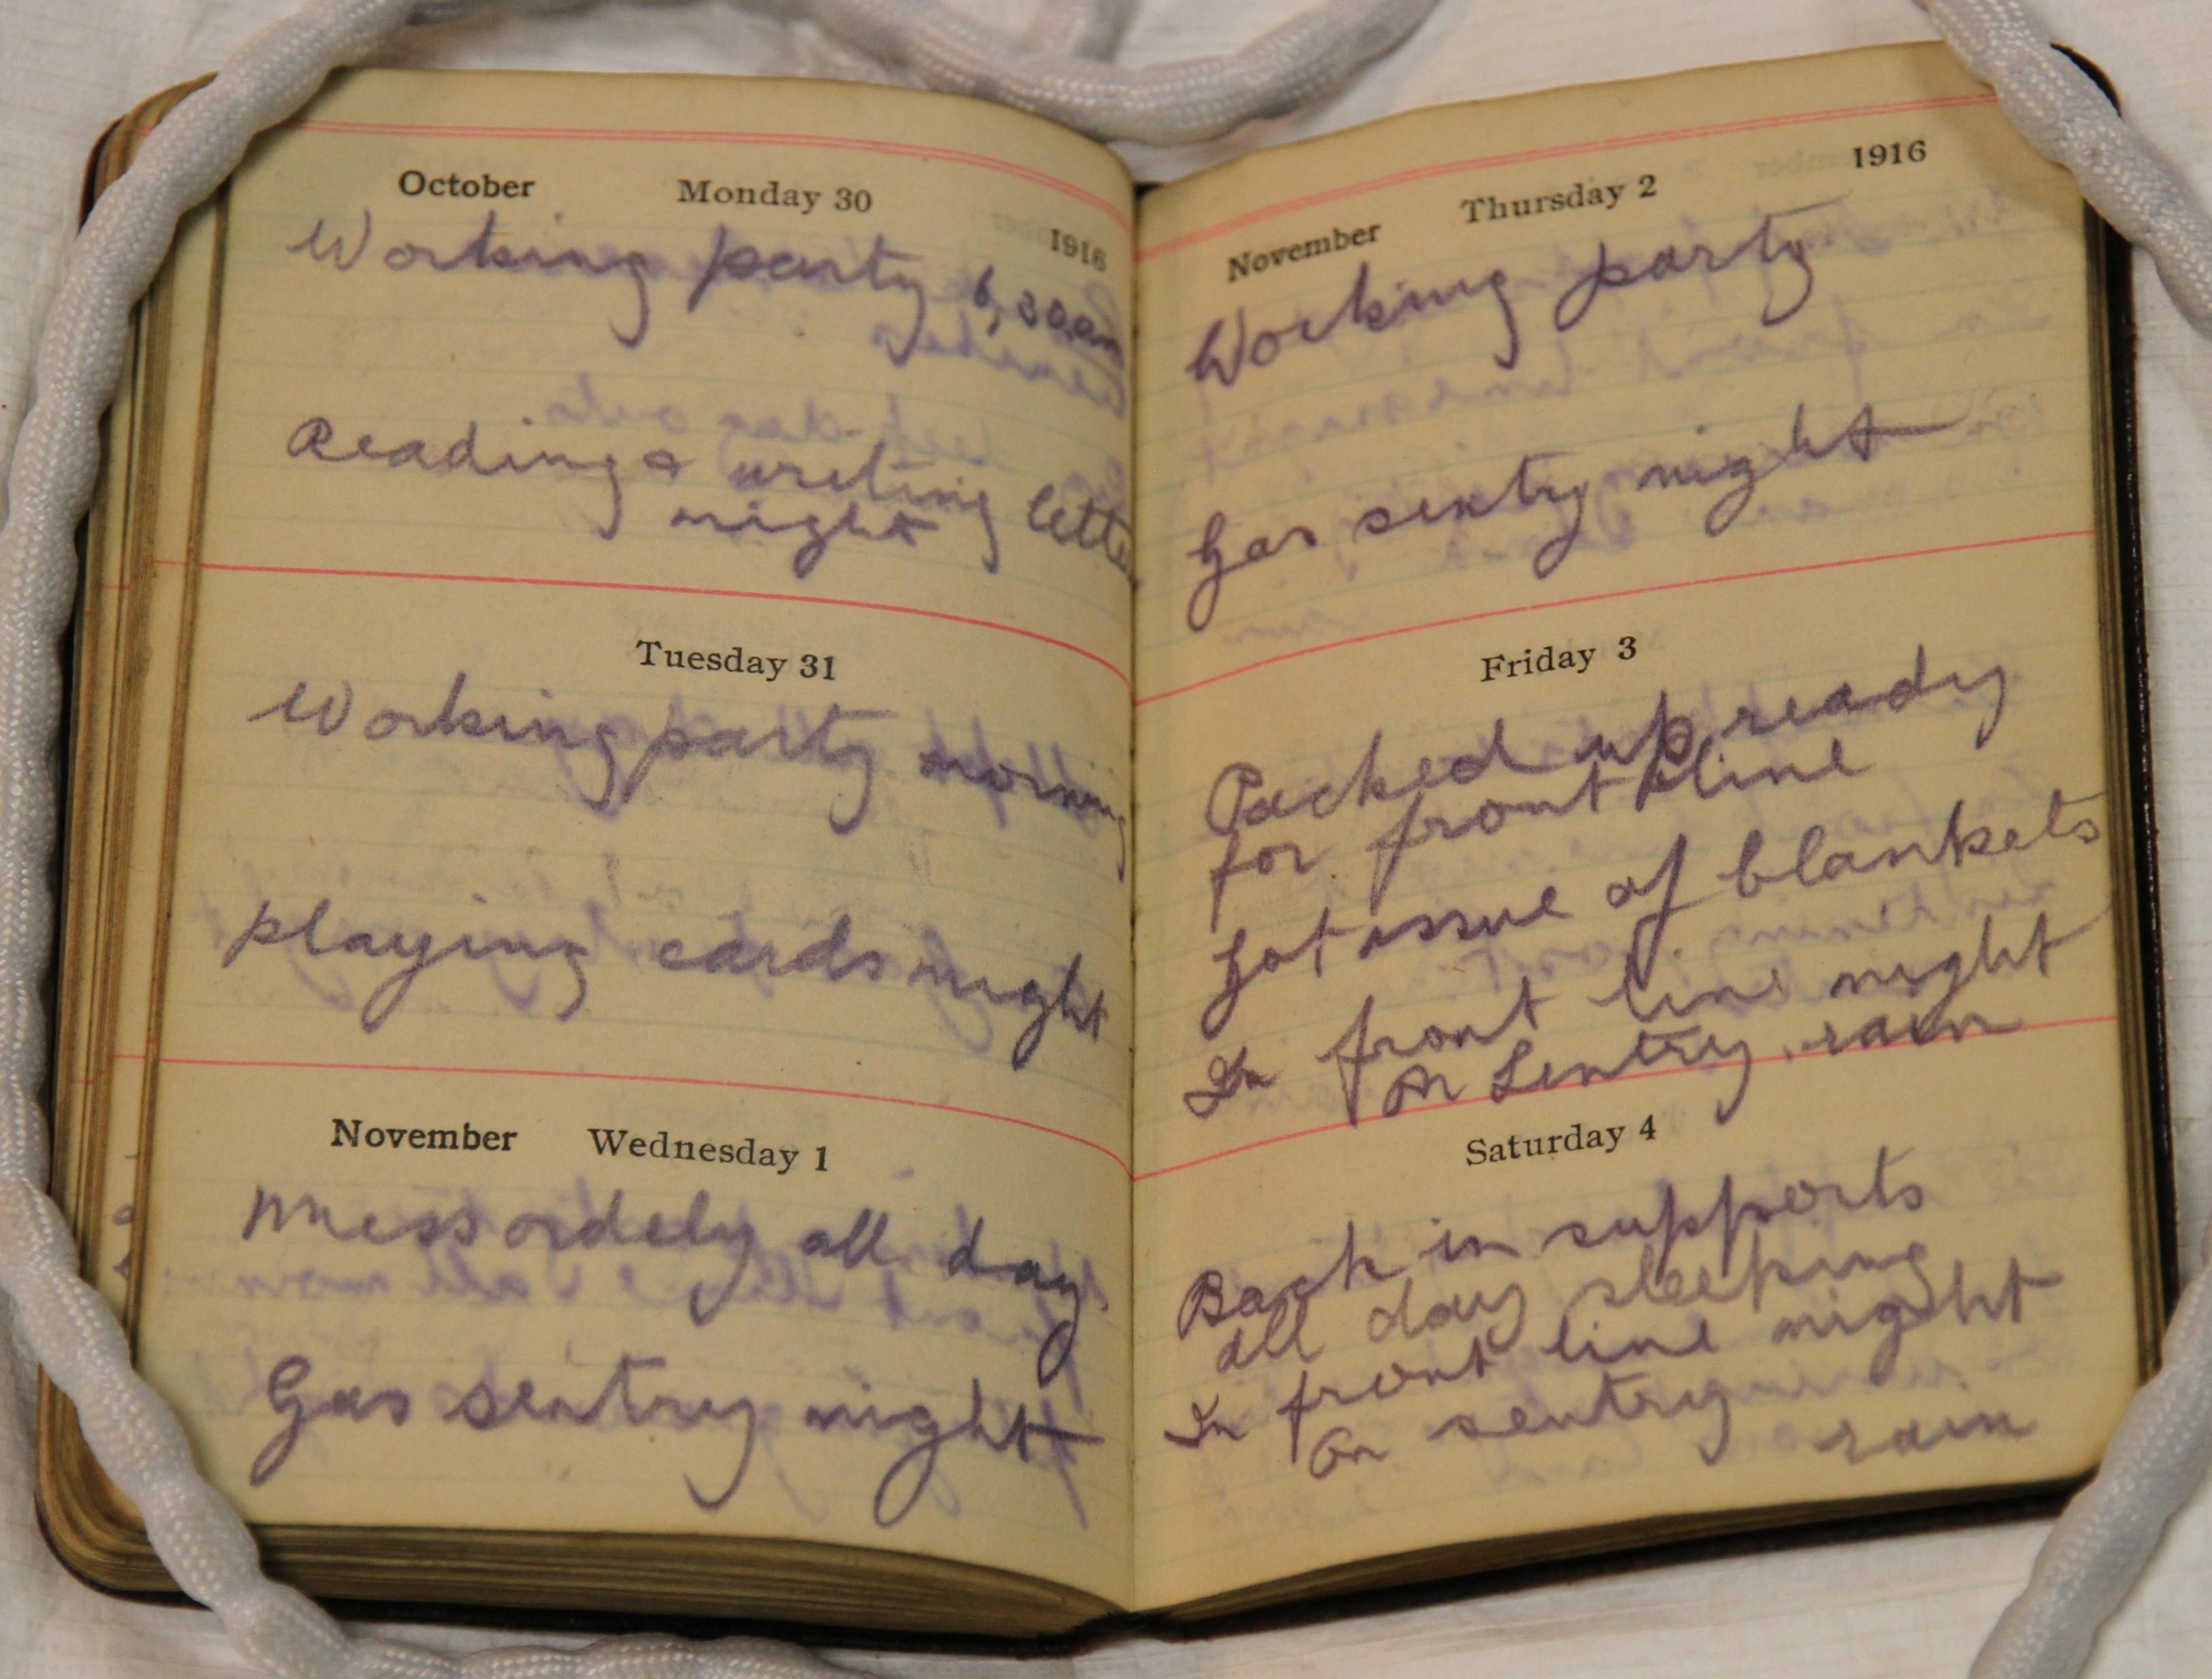 October Monday 30 1916
Working party 6,30am
Reading & writing lette
night
Tuesday 31
Working party morning
playing cards night
November Wednesday 1
Mess ordely all day
Gas sentry night
November Thursday 2 1916
Working party
Gas sentry night
Friday 3
Packed up ready
for front line
Got issue of blankets
In front line night
On Sentry. rain
Saturday 4
Back in supports
all day sleeping
In front line night
On sentry
rain